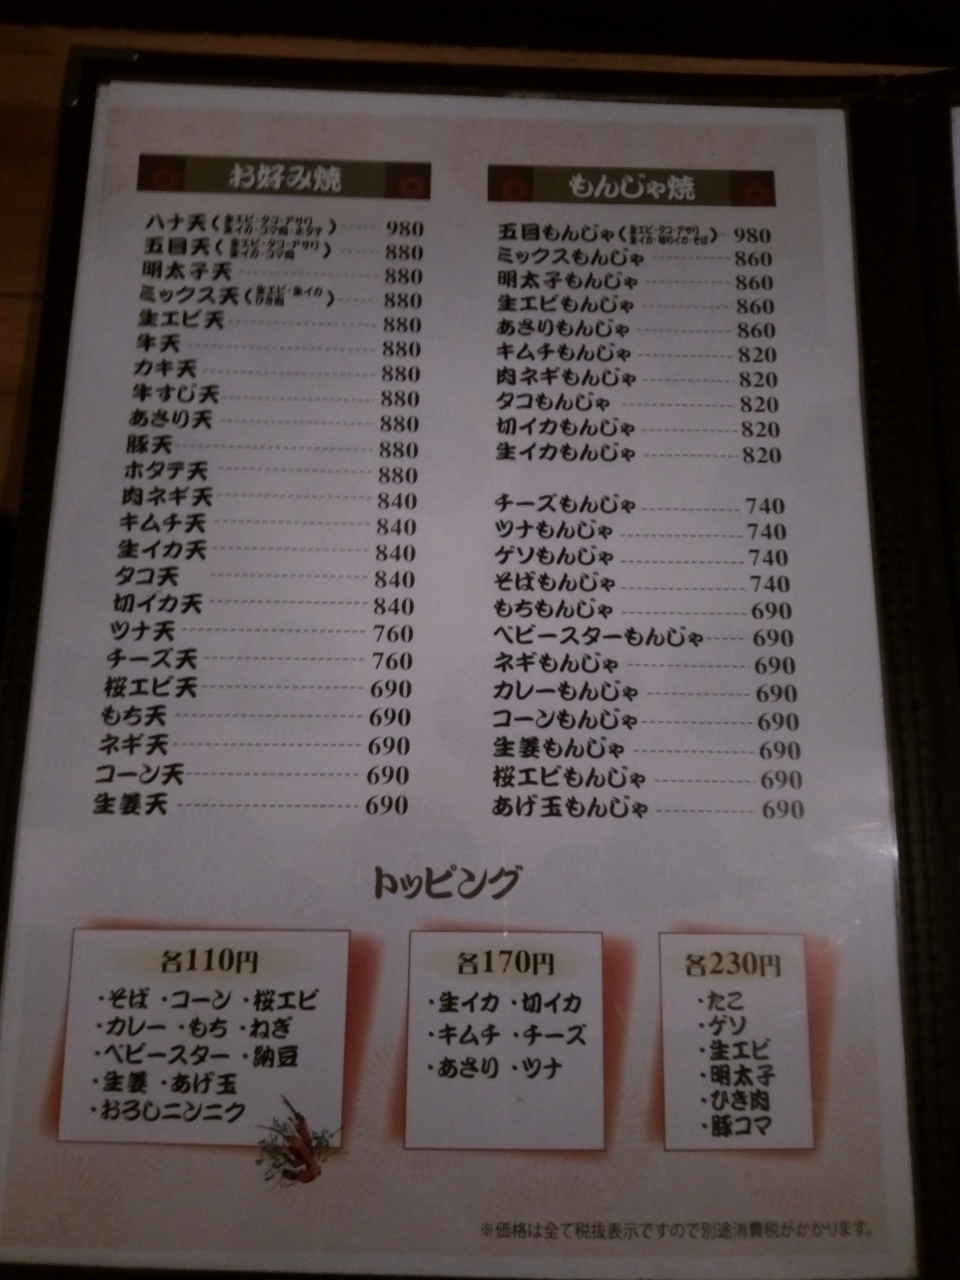 お好み焼
ハナ天(生エビ・タコ・アサリ 生イカ・コマ肉・ホタテ) 980
五目天(生エビ・タコ・アサリ 生イカ・コマ肉) 880
明太子天 880
ミックス天(生エビ・生イカ ひき肉) 880
生エビ天 880
牛天 880
カキ天 880
牛すじ天 880
あさり天 880
豚天 880
ホタテ天 880
肉ネギ天 840
キムチ天 840
生イカ天 840
タコ天 840
切イカ天 840
ツナ天 760
チーズ天 760
桜エビ天 690
もち天 690
ネギ天 690
コーン天 690
生姜天 690
もんじゃ焼
五目もんじゃ(生エビ・タコ・アサリ 生イカ・切りイカ・そば) 980
ミックスもんじゃ 860
明太子もんじゃ 860
生エビもんじゃ 860
あさりもんじゃ 860
キムチもんじゃ 820
肉ネギもんじゃ 820
タコもんじゃ 820
切イカもんじゃ 820
生イカもんじゃ 820
チーズもんじゃ 740
ツナもんじゃ 740
ゲソもんじゃ 740
そばもんじゃ 740
もちもんじゃ 690
ベビースターもんじゃ 690
ネギもんじゃ 690
カレーもんじゃ 690
コーンもんじゃ 690
生姜もんじゃ 690
桜エビもんじゃ 690
あげ玉もんじゃ 690
トッピング
各110円
・そば ・コーン ・桜エビ
・カレー ・もち ・ねぎ
・ベビースター ・納豆
・生姜 ・あげ玉
・おろしニンニク
各170円
・生イカ ・切イカ
・キムチ ・チーズ
・あさり ・ツナ
各230円
・たこ
・ゲソ
・生エビ
・明太子
・ひき肉
・豚コマ
※価格は全て税抜表示ですので別途消費税がかかります。